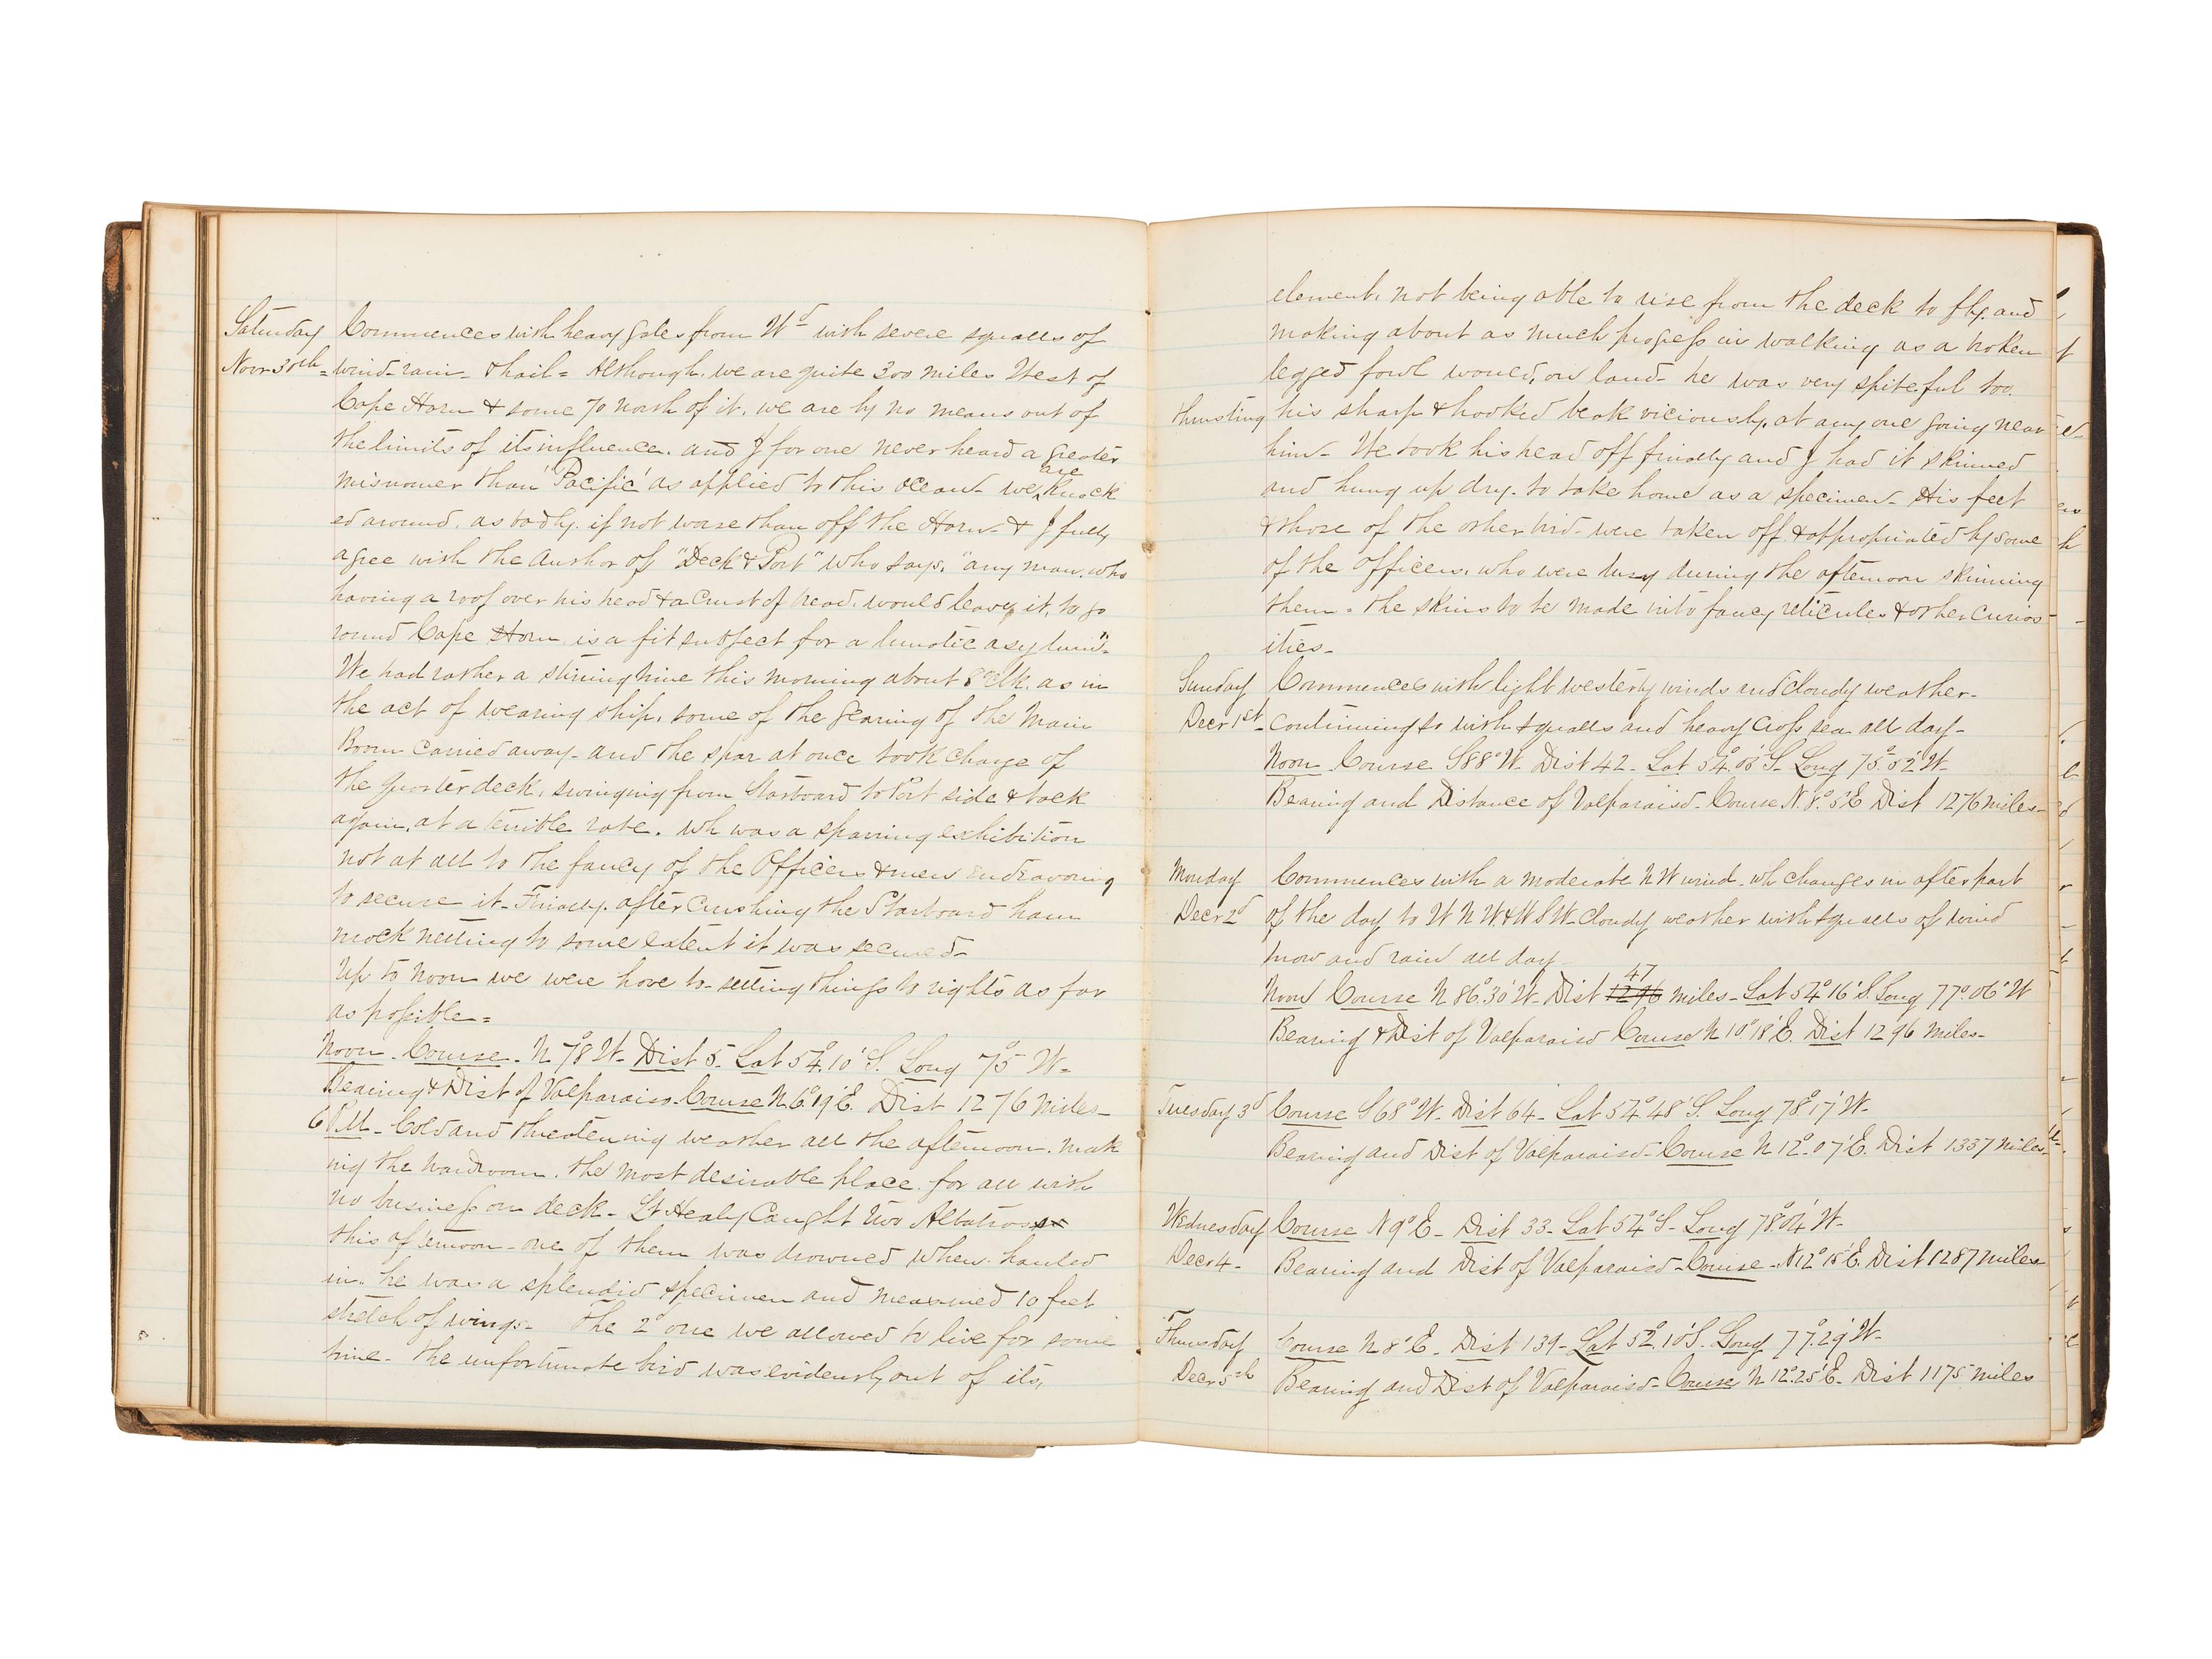 Saturday Commences with heavy gales from Wd with severe squalls of
Novr 30th = wind - rain - & hail = Although we are quite 300 miles West of
Cape Horn & some 70 north of it, we are by no means out of
the limits of its influence. and I for one never heard a greater
are
misnomer than 'Pacific' as applied to this ocean - we knock
ed around, as badly, if not worse than off the Horn - & I fully
agree with the Author of "Deck & Port" who says, "any man, who
having a roof over his head & a crust of bread, would leave it, to go
round Cape Horn is a fit subject for a lunatic asylum" =
We had rather a stirring time this morning about 8 oClk. as in
the act of wearing ship, some of the gearing of the Main
Boom carried away - and the spar at once took charge of
the quarter deck, swinging from Starboard to Port side & back
again, at a terrible rate. wh was a sparring exhibition
not at all to the fancy of the Officers & men endeavoring
to secure it - Finally, after crushing the Starboard ham
mock netting to some extent it was secured -
Up to noon we were hove to - setting things to rights as far
as possible =
Noon - Course - N 78° W - Dist 5 - Lat 54°.10' S. Long 75° W -
Bearing & Dist of Valparaiso - Course N 6°.19' E. Dist 1276 miles -
6 P.M. - Cold and threatening weather all the afternoon. mak
ing the Wardroom, the most desirable place for all with
no business on deck - Lt Healy Caught two Albatross
this afternoon - one of them was drowned when hauled
in. he was a splendid specimen and measured 10 feet
stretch of wings - The 2d one we allowed to live for some
time - the unfortunate bird was evidently out of its,
element, not being able to rise from the deck to fly, and
making about as much progress in walking as a broken
legged fowl would, on land - he was very spiteful too.
thrusting his sharp & hooked beak viciously, at any one going near
him - We took his head off finally and I had it skinned
and hung up dry. to take home as a specimen - His feet
& those of the other bird - were taken off & appropriated by some
of the Officers, who were busy during the afternoon skinning
them = the skins to be made into fancy reticules & other curios
ities -
Sunday Commences with light westerly winds and cloudy weather -
Decr 1st - continuing so with squalls and heavy cross sea all day -
Noon Course S 88° W - Dist 42 - Lat 54°.06' S - Long 75°.52' W -
Bearing and Distance of Valparaiso - Course N. 8°.5' E Dist 1276 miles -
Monday Commences with a moderate N W wind - wh changes in after part
Decr 2d of the day to W N W & W S W - cloudy weather with squalls of wind
snow and rain all day -
47
Noon Course N 86°.30' W - Dist 1296 miles - Lat 54°16' S. Long 77°.06' W
Bearing & Dist of Valparaiso Course N 10°18' E. Dist 1296 miles -
Tuesday 3d Course S 68° W - Dist 64 - Lat 54°.48' S. Long 78°17' W -
Bearing and Dist of Valparaiso - Course N 12°.07' E. Dist 1337 miles -
Wednesday Course N 9° E - Dist 33 - Lat 54° S - Long 78°.04' W -
Decr 4 - Bearing and Dist of Valparaiso - Course - N 12° 15' E. Dist 1287 miles
Thursday Course N 8° E - Dist 139 - Lat 52°.10' S. Long 77°.29' W -
Decr 5th Bearing and Dist of Valparaiso - Course N 12°.25' E - Dist 1175 miles